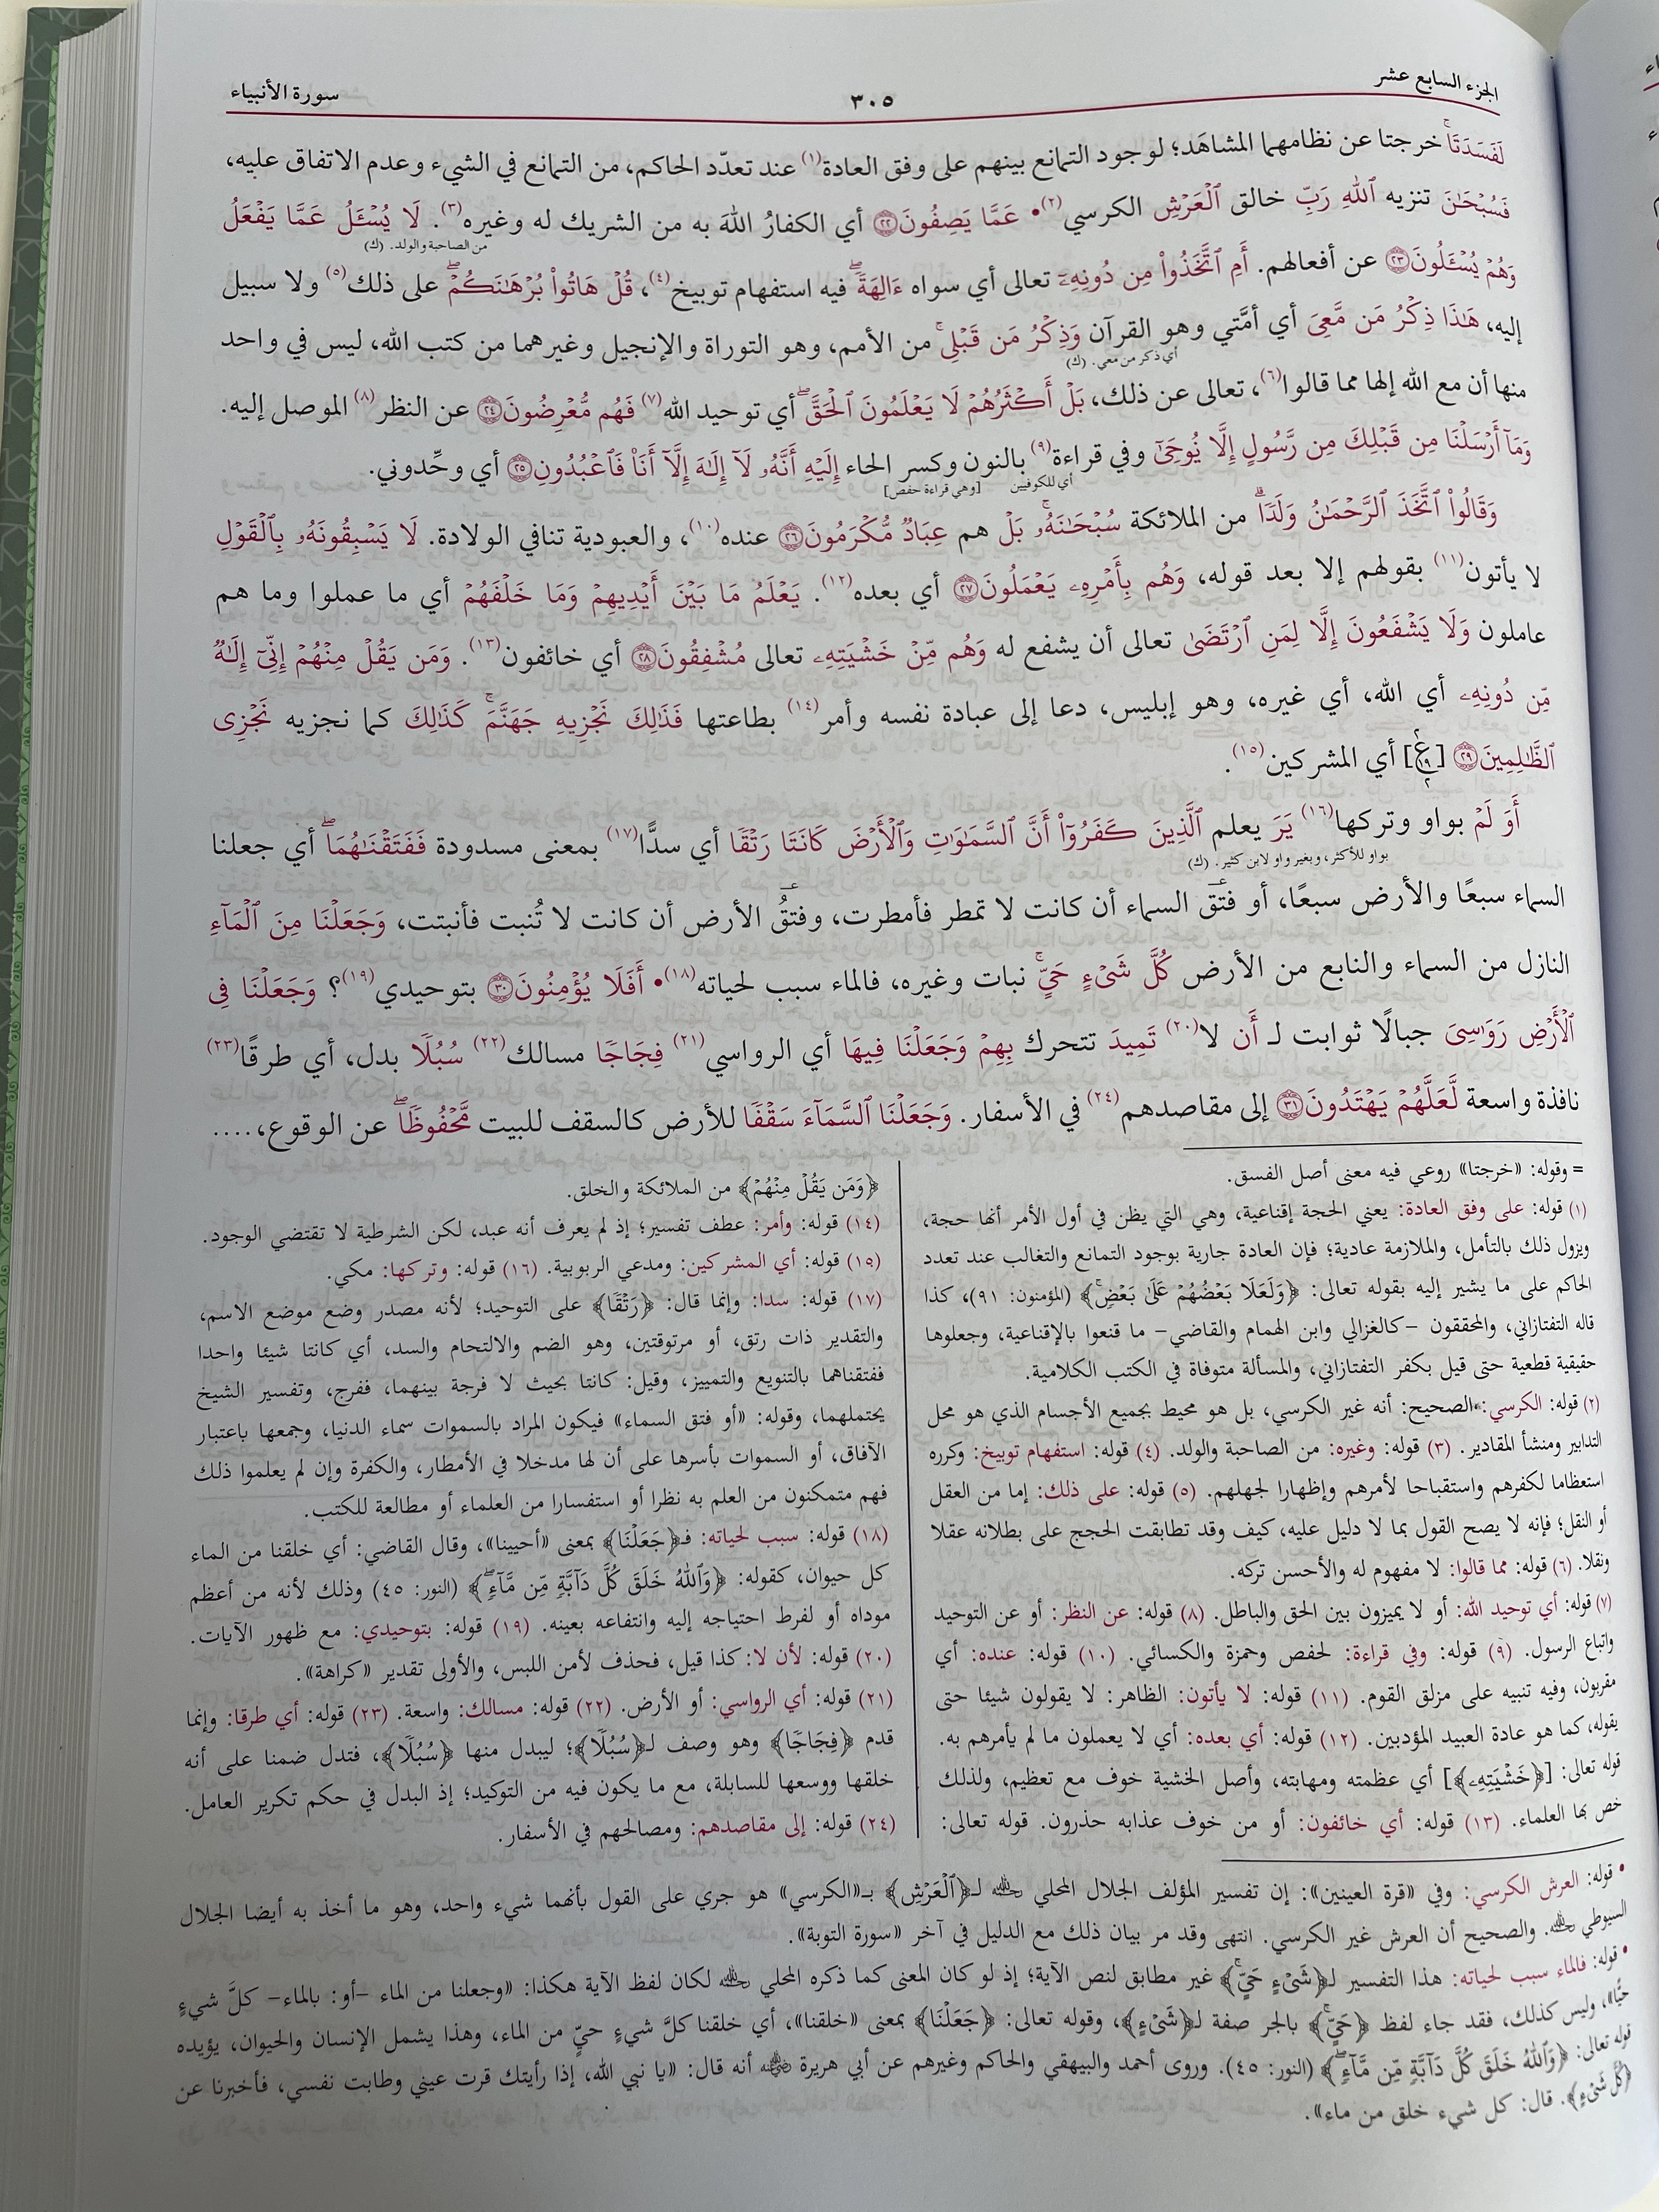 الجزء السابع عشر
٣٠٥
سورة الأنبياء
لَفَسَدَتَاۚ خرجتا عن نظامهما المشاهَد؛ لوجود التمانع بينهم على وفق العادة(١) عند تعدّد الحاكم، من التمانع في الشيء وعدم الاتفاق عليه،
فَسُبْحَٰنَ تنزيه ٱللَّهِ رَبِّ خالق ٱلْعَرْشِ الكرسي(٢)• عَمَّا يَصِفُونَ ٢٢ أي الكفارُ اللهَ به من الشريك له وغيره(٣). لَا يُسْـَٔلُ عَمَّا يَفْعَلُ
من الصاحبة والولد. (ك)
وَهُمْ يُسْـَٔلُونَ ٢٣ عن أفعالهم. أَمِ ٱتَّخَذُوا۟ مِن دُونِهِۦٓ تعالى أي سواه ءَالِهَةًۖ فيه استفهام توبيخ(٤)، قُلْ هَاتُوا۟ بُرْهَٰنَكُمْۖ على ذلك(٥) ولا سبيل
إليه، هَٰذَا ذِكْرُ مَن مَّعِىَ أي أمَّتي وهو القرآن وَذِكْرُ مَن قَبْلِىۚ من الأمم، وهو التوراة والإنجيل وغيرهما من كتب الله، ليس في واحد
أي ذكر من معي. (ك)
منها أن مع الله إلها مما قالوا(٦)، تعالى عن ذلك، بَلْ أَكْثَرُهُمْ لَا يَعْلَمُونَ ٱلْحَقَّۖ أي توحيد الله(٧) فَهُم مُّعْرِضُونَ ٢٤ عن النظر(٨) الموصل إليه.
وَمَآ أَرْسَلْنَا مِن قَبْلِكَ مِن رَّسُولٍ إِلَّا يُوحَىٰٓ وفي قراءة(٩) بالنون وكسر الحاء إِلَيْهِ أَنَّهُۥ لَآ إِلَٰهَ إِلَّآ أَنَا۠ فَٱعْبُدُونِ ٢٥ أي وحِّدوني.
أي للكوفيين [وهي قراءة حفص]
وَقَالُوا۟ ٱتَّخَذَ ٱلرَّحْمَٰنُ وَلَدًاۗ من الملائكة سُبْحَٰنَهُۥۚ بَلْ هم عِبَادٌ مُّكْرَمُونَ ٢٦ عنده(١٠)، والعبودية تنافي الولادة. لَا يَسْبِقُونَهُۥ بِٱلْقَوْلِ
لا يأتون(١١) بقولهم إلا بعد قوله، وَهُم بِأَمْرِهِۦ يَعْمَلُونَ ٢٧ أي بعده(١٢). يَعْلَمُ مَا بَيْنَ أَيْدِيهِمْ وَمَا خَلْفَهُمْ أي ما عملوا وما هم
عاملون وَلَا يَشْفَعُونَ إِلَّا لِمَنِ ٱرْتَضَىٰ تعالى أن يشفع له وَهُم مِّنْ خَشْيَتِهِۦ تعالى مُشْفِقُونَ ٢٨ أي خائفون(١٣). وَمَن يَقُلْ مِنْهُمْ إِنِّىٓ إِلَٰهٌ
مِّن دُونِهِۦ أي الله، أي غيره، وهو إبليس، دعا إلى عبادة نفسه وأمر(١٤) بطاعتها فَذَٰلِكَ نَجْزِيهِ جَهَنَّمَۚ كَذَٰلِكَ كما نجزيه نَجْزِى
ٱلظَّٰلِمِينَ ٢٩ [ع] أي المشركين(١٥).
أَوَ لَمْ بواو وتركها(١٦) يَرَ يعلم ٱلَّذِينَ كَفَرُوٓا۟ أَنَّ ٱلسَّمَٰوَٰتِ وَٱلْأَرْضَ كَانَتَا رَتْقًا أي سدًّا(١٧) بمعنى مسدودة فَفَتَقْنَٰهُمَاۖ أي جعلنا
بواو للأكثر، وبغير واو لابن كثير. (ك)
السماء سبعًا والأرض سبعًا، أو فتقَ السماء أن كانت لا تمطر فأمطرت، وفتقُ الأرض أن كانت لا تُنبت فأنبتت، وَجَعَلْنَا مِنَ ٱلْمَآءِ
النازل من السماء والنابع من الأرض كُلَّ شَىْءٍ حَىٍّۚ نبات وغيره، فالماء سبب لحياته(١٨)• أَفَلَا يُؤْمِنُونَ ٣٠ بتوحيدي(١٩)؟ وَجَعَلْنَا فِى
ٱلْأَرْضِ رَوَٰسِىَ جبالًا ثوابت لـ أَن لا(٢٠) تَمِيدَ تتحرك بِهِمْ وَجَعَلْنَا فِيهَا أي الرواسي(٢١) فِجَاجًا مسالك(٢٢) سُبُلًا بدل، أي طرقًا(٢٣)
نافذة واسعة لَّعَلَّهُمْ يَهْتَدُونَ ٣١ إلى مقاصدهم(٢٤) في الأسفار. وَجَعَلْنَا ٱلسَّمَآءَ سَقْفًا للأرض كالسقف للبيت مَّحْفُوظًاۖ عن الوقوع،....
= وقوله: «خرجتا» روعي فيه معنى أصل الفسق.
(١) قوله: على وفق العادة: يعني الحجة إقناعية، وهي التي يظن في أول الأمر أنها حجة،
ويزول ذلك بالتأمل، والملازمة عادية؛ فإن العادة جارية بوجود التمانع والتغالب عند تعدد
الحاكم على ما يشير إليه بقوله تعالى: ﴿وَلَعَلَا بَعْضُهُمْ عَلَىٰ بَعْضٍۚ﴾ (المؤمنون: ٩١)، كذا
قاله التفتازاني، والمحققون –كالغزالي وابن الهمام والقاضي– ما قنعوا بالإقناعية، وجعلوها
حقيقية قطعية حتى قيل بكفر التفتازاني، والمسألة متوفاة في الكتب الكلامية.
(٢) قوله: الكرسي: الصحيح: أنه غير الكرسي، بل هو محيط بجميع الأجسام الذي هو محل
التدابير ومنشأ المقادير. (٣) قوله: وغيره: من الصاحبة والولد. (٤) قوله: استفهام توبيخ: وكرره
استعظاما لكفرهم واستقباحا لأمرهم وإظهارا لجهلهم. (٥) قوله: على ذلك: إما من العقل
أو النقل؛ فإنه لا يصح القول بما لا دليل عليه، كيف وقد تطابقت الحجج على بطلانه عقلا
ونقلا. (٦) قوله: مما قالوا: لا مفهوم له والأحسن تركه.
(٧) قوله: أي توحيد الله: أو لا يميزون بين الحق والباطل. (٨) قوله: عن النظر: أو عن التوحيد
واتباع الرسول. (٩) قوله: وفي قراءة: لحفص وحمزة والكسائي. (١٠) قوله: عنده: أي
مقربون، وفيه تنبيه على مزلق القوم. (١١) قوله: لا يأتون: الظاهر: لا يقولون شيئا حتى
يقوله، كما هو عادة العبيد المؤدبين. (١٢) قوله: أي بعده: أي لا يعملون ما لم يأمرهم به.
قوله تعالى: [﴿خَشْيَتِهِۦ﴾] أي عظمته ومهابته، وأصل الخشية خوف مع تعظيم، ولذلك
خص بها العلماء. (١٣) قوله: أي خائفون: أو من خوف عذابه حذرون. قوله تعالى:
﴿وَمَن يَقُلْ مِنْهُمْ﴾ من الملائكة والخلق.
(١٤) قوله: وأمر: عطف تفسير؛ إذ لم يعرف أنه عبد، لكن الشرطية لا تقتضي الوجود.
(١٥) قوله: أي المشركين: ومدعي الربوبية. (١٦) قوله: وتركها: مكي.
(١٧) قوله: سدا: وإنما قال: ﴿رَتْقًا﴾ على التوحيد؛ لأنه مصدر وضع موضع الاسم،
والتقدير ذات رتق، أو مرتوقتين، وهو الضم والالتحام والسد، أي كانتا شيئا واحدا
ففتقناهما بالتنويع والتمييز، وقيل: كانتا بحيث لا فرجة بينهما، ففرج، وتفسير الشيخ
يحتملهما، وقوله: «أو فتق السماء» فيكون المراد بالسموات سماء الدنيا، وجمعها باعتبار
الآفاق، أو السموات بأسرها على أن لها مدخلا في الأمطار، والكفرة وإن لم يعلموا ذلك
فهم متمكنون من العلم به نظرا أو استفسارا من العلماء أو مطالعة للكتب.
(١٨) قوله: سبب لحياته: فـ﴿جَعَلْنَا﴾ بمعنى «أحيينا»، وقال القاضي: أي خلقنا من الماء
كل حيوان، كقوله: ﴿وَٱللَّهُ خَلَقَ كُلَّ دَآبَّةٍ مِّن مَّآءٍۖ﴾ (النور: ٤٥) وذلك لأنه من أعظم
موداه أو لفرط احتياجه إليه وانتفاعه بعينه. (١٩) قوله: بتوحيدي: مع ظهور الآيات.
(٢٠) قوله: لأن لا: كذا قيل، فحذف لأمن اللبس، والأولى تقدير «كراهة».
(٢١) قوله: أي الرواسي: أو الأرض. (٢٢) قوله: مسالك: واسعة. (٢٣) قوله: أي طرقا: وإنما
قدم ﴿فِجَاجًا﴾ وهو وصف لـ﴿سُبُلًا﴾؛ ليبدل منها ﴿سُبُلًا﴾، فتدل ضمنا على أنه
خلقها ووسعها للسابلة، مع ما يكون فيه من التوكيد؛ إذ البدل في حكم تكرير العامل.
(٢٤) قوله: إلى مقاصدهم: ومصالحهم في الأسفار.
• قوله: العرش الكرسي: وفي «قرة العينين»: إن تفسير المؤلف الجلال المحلي رحمه الله لـ﴿ٱلْعَرْشِ﴾ بـ«الكرسي» هو جري على القول بأنهما شيء واحد، وهو ما أخذ به أيضا الجلال
السيوطي رحمه الله. والصحيح أن العرش غير الكرسي. انتهى وقد مر بيان ذلك مع الدليل في آخر «سورة التوبة».
• قوله: فالماء سبب لحياته: هذا التفسير لـ﴿شَىْءٍ حَىٍّۚ﴾ غير مطابق لنص الآية؛ إذ لو كان المعنى كما ذكره المحلي رحمه الله لكان لفظ الآية هكذا: «وجعلنا من الماء –أو: بالماء– كلَّ شيءٍ
حيًّا»، وليس كذلك، فقد جاء لفظ ﴿حَىٍّۚ﴾ بالجر صفة لـ﴿شَىْءٍ﴾، وقوله تعالى: ﴿جَعَلْنَا﴾ بمعنى «خلقنا»، أي خلقنا كلَّ شيءٍ حيٍّ من الماء، وهذا يشمل الإنسان والحيوان، يؤيده
قوله تعالى: ﴿وَٱللَّهُ خَلَقَ كُلَّ دَآبَّةٍ مِّن مَّآءٍۖ﴾ (النور: ٤٥). وروى أحمد والبيهقي والحاكم وغيرهم عن أبي هريرة رضي الله عنه أنه قال: «يا نبي الله، إذا رأيتك قرت عيني وطابت نفسي، فأخبرنا عن
﴿كُلَّ شَىْءٍ﴾. قال: كل شيء خلق من ماء».